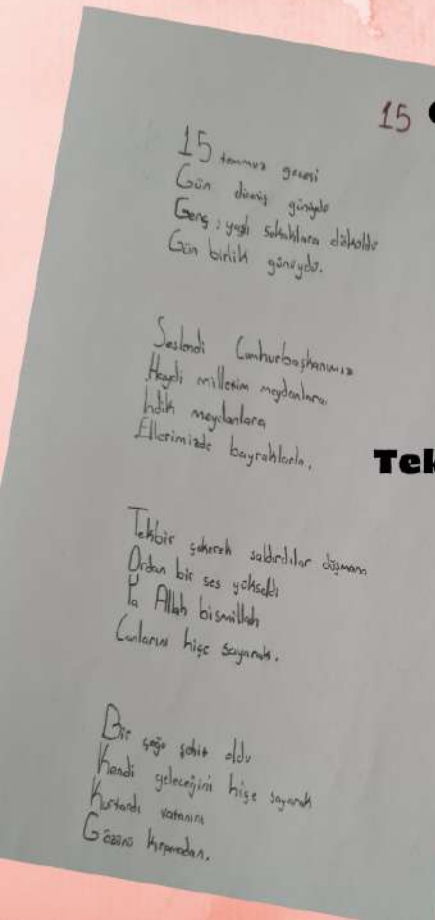 15
15 temmuz gecesi
Gün direniş günüydü
Genç, yaşlı sokaklara döküldü
Gün birlik günüydü.
Seslendi Cumhurbaşkanımız
Haydi milletim meydanlara
İndik meydanlara
Ellerimizde bayraklarla.
Tek
Tekbir çekerek saldırdılar düşmana
Ordan bir ses yükseldi
Ya Allah bismillah
Canlarını hiçe sayarak.
Bir çoğu şehit oldu
Kendi geleceğini hiçe sayarak
Kurtardı vatanını
Gözünü kırpmadan.